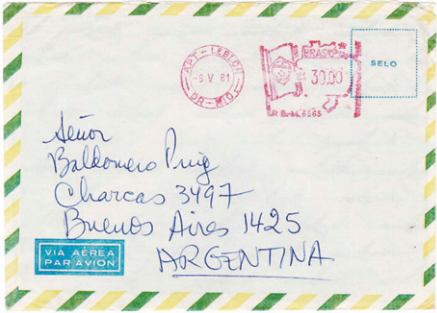 APT-LEBLON
-6.V 81
DR-RIO
BRASIL
30,00
SELO
Señor
Baldomero Puig
Charcas 3497
Buenos Aires 1425
ARGENTINA
VIA AÉREA
PAR AVION